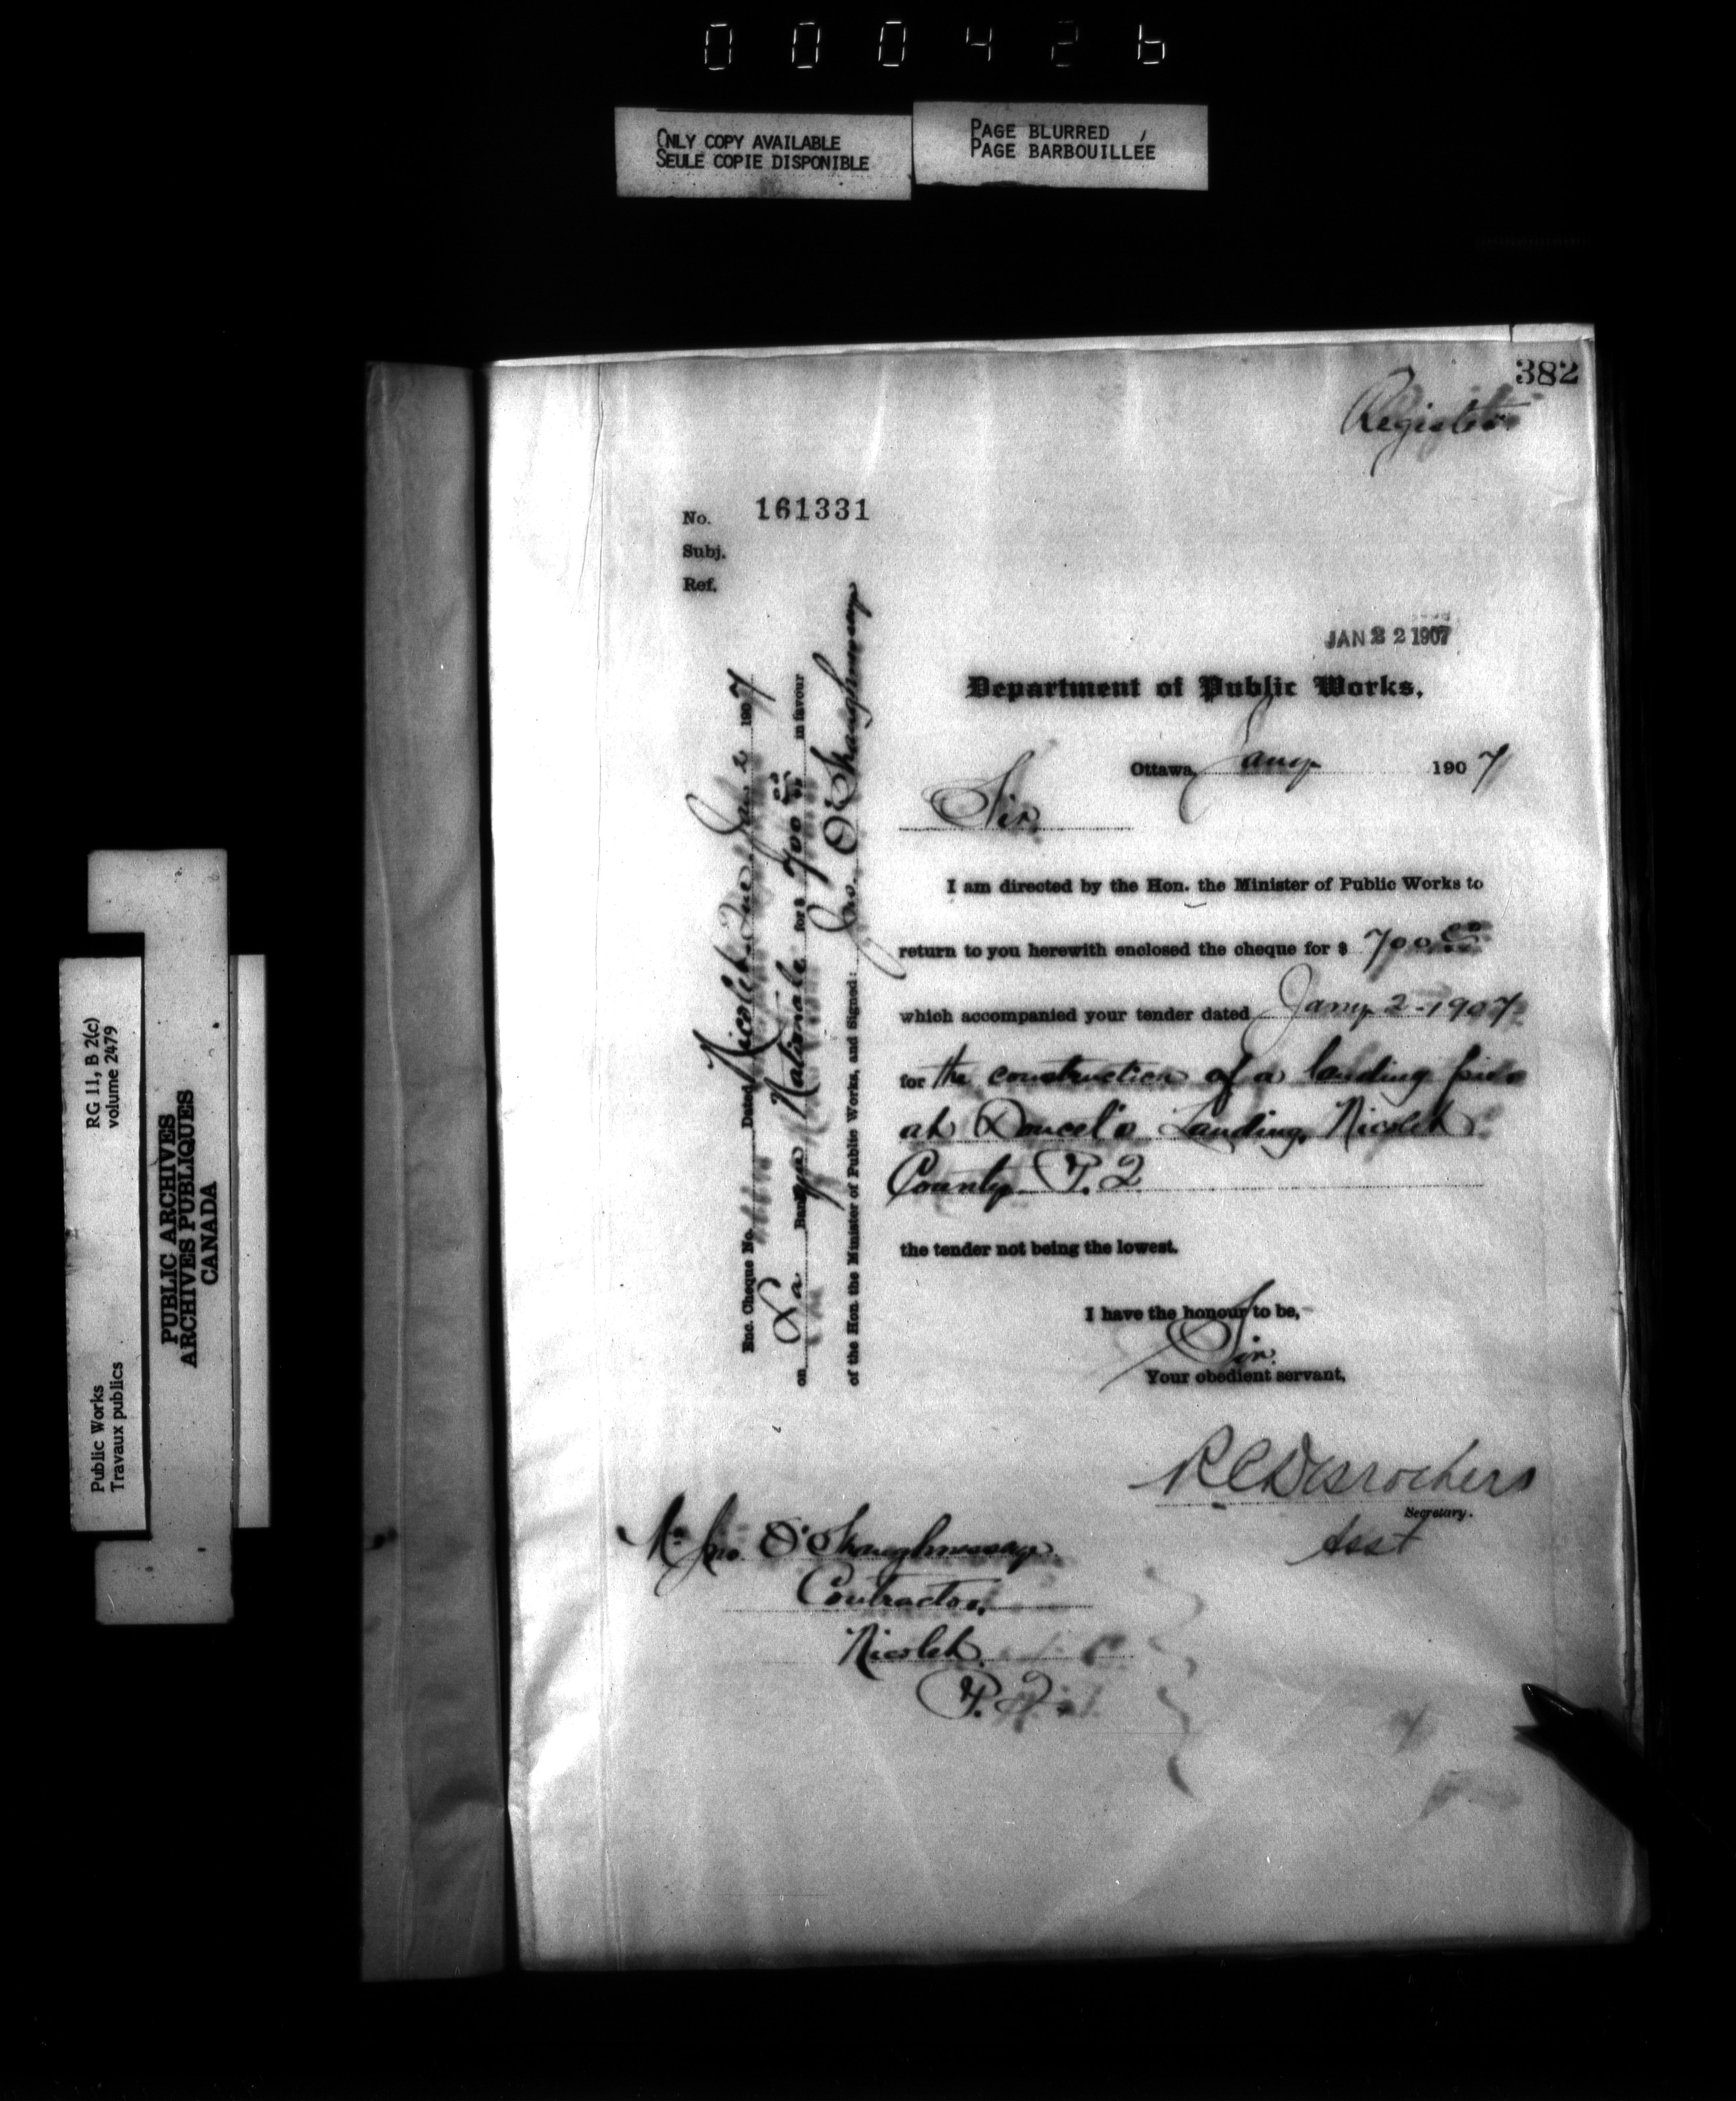 000426
ONLY COPY AVAILABLE
SEULE COPIE DISPONIBLE
PAGE BLURRED
PAGE BARBOUILLÉE
382
Register
No. 161331
Subj.
Ref.
JAN 22 1907
Department of Public Works.
Ottawa, Jany 1907
Sir.
I am directed by the Hon. the Minister of Public Works to
return to you herewith enclosed the cheque for $ 700.00
which accompanied your tender dated Jany 2 - 1907
for the construction of a landing pier
at Doucet's Landing, Nicolet
County P.Q
the tender not being the lowest.
I have the honour to be,
Sir.
Your obedient servant,
RC Desrochers
Secretary.
Asst
Mr Jno. O'Shaughnessy
Contractor,
Nicolet
P.Q.
Enc. Cheque No. Dated Nicolet Que Jan 2 1907
on La Banque Nationale for $ 700.00 in favour
of the Hon. the Minister of Public Works, and Signed: Jno. O'Shaughnessy
Public Works
Travaux publics
RG 11, B 2(c)
volume 2479
PUBLIC ARCHIVES
ARCHIVES PUBLIQUES
CANADA